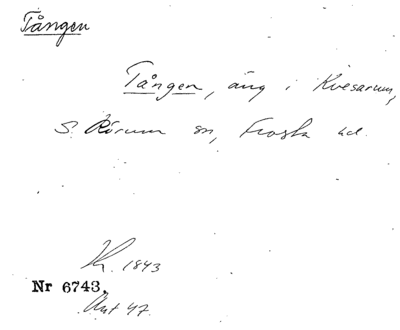 Tången
Tången, äng i Kvesarum,
S. Rörum sn, Frosta hd.
K. 1843
Nr 6743.
Ant 47.